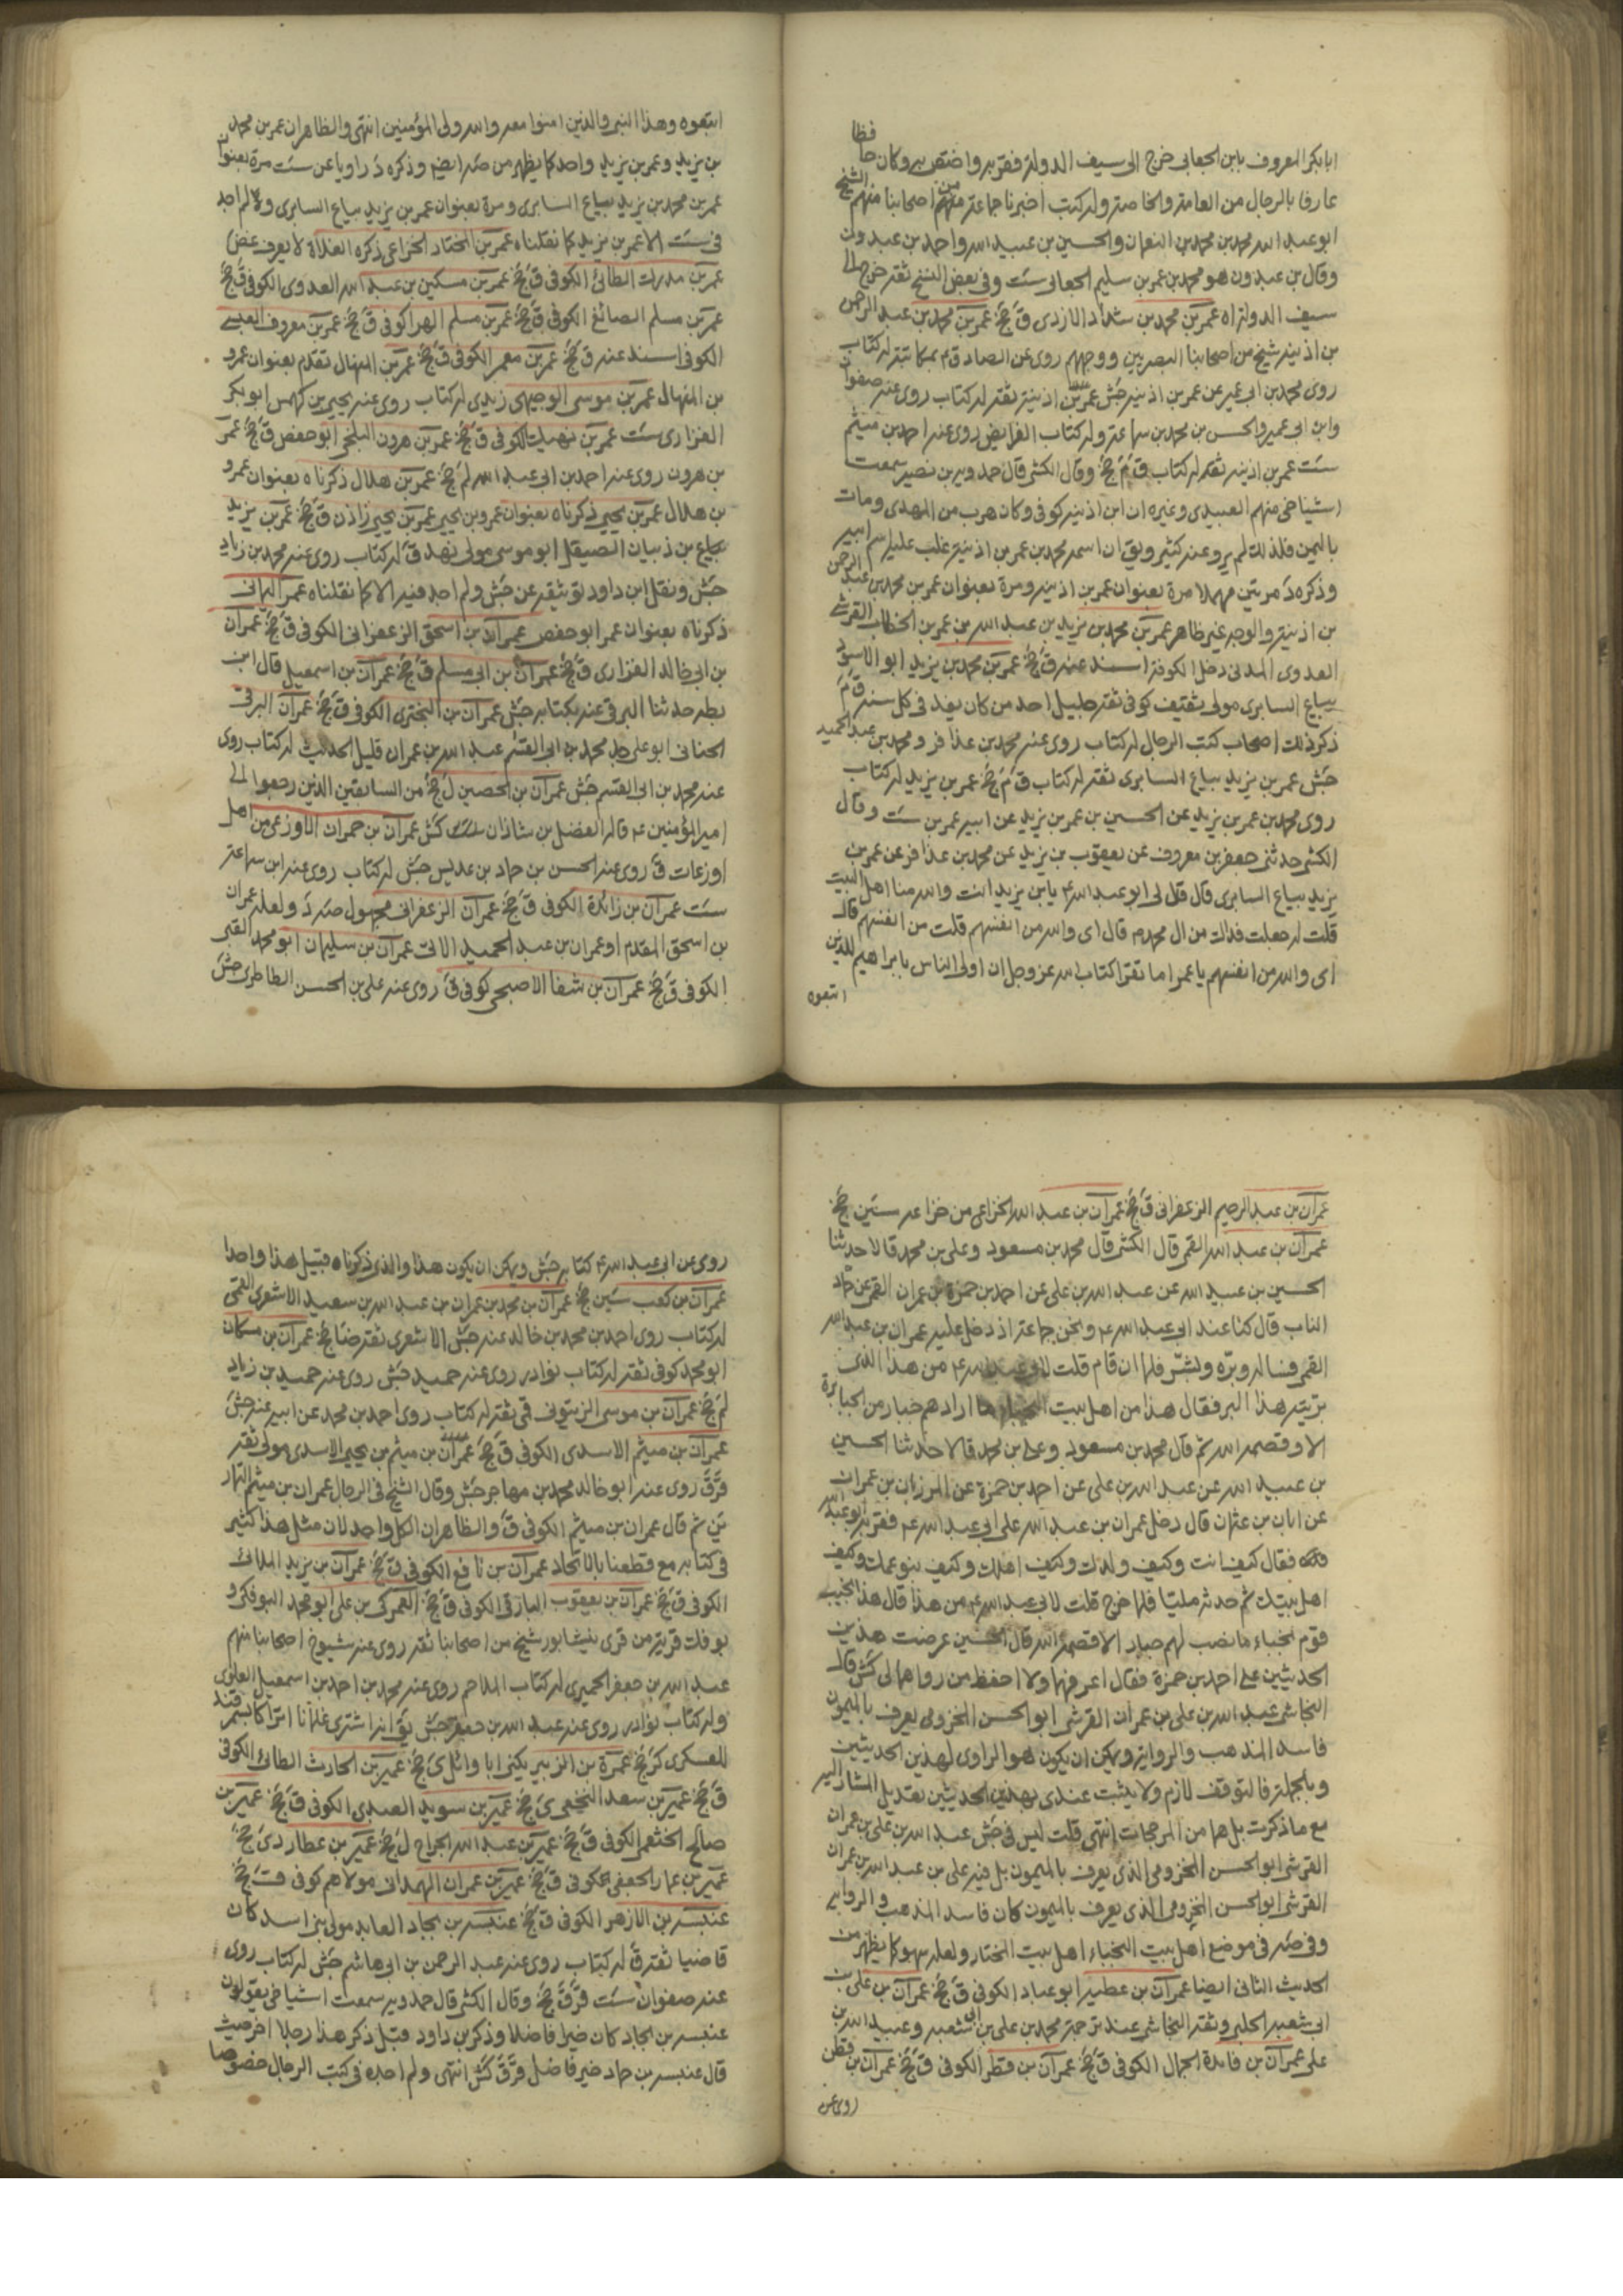 ابابكر المعروف بابن الجعابى خرج الى سيف الدولة فقربه واختص به وكان حا
فظا
عارفا بالرجال من العامة والخاصة وله كتب اخبرنا جماعة منهم من اصحابنا منهم الشيخ
ابو عبد الله محمد بن محمد بن النعمان والحسين بن عبيد الله واحمد بن عبدون
وقال بن عبدون هو محمد بن عمر بن سليم الجعابى ست وفى بعض النسخ ثقة خرج الى
سيف الدولة اه عمر بن محمد بن شداد الازدى ق جخ عمر بن محمد بن عبد الرحمن
بن اذينة شيخ من اصحابنا البصريين ووجههم روى عن الصادق ع بمكاتبة له كتاب
روى محمد بن ابى عمير عن عمر بن اذينة جش عمر بن اذينة ثقة له كتاب روى عنه صفوان
وابن ابى عمير والحسن بن محمد بن سماعة وله كتاب الفرايض روى عنه احمد بن ميثم
ست عمر بن اذينة ثقة له كتاب ق م جخ وقال الكشى قال حمدويه بن نصير سمعت
اشياخى منهم العبيدى وغيره ان ابن اذينة كوفى وكان هرب من المهدى ومات
باليمن فلذلك لم يرو عنه كثير ويق ان اسمه محمد بن عمر بن اذينة غلب عليه اسم ابيه
وذكره د مرتين مهملا مرة بعنوان عمر بن اذينة ومرة بعنوان عمر بن محمد بن عبد الرحمن
بن اذينة والوجه غير ظاهر عمر بن محمد بن يزيد بن عبد الله بن عمر بن الخطاب القرشى
العدوى المدنى دخل الكوفة اسند عنه ق جخ عمر بن محمد بن يزيد ابو الاسود
بياع السابرى مولى ثقيف كوفى ثقة جليل احد من كان يفد فى كل سنة ق م
ذكر ذلك اصحاب كتب الرجال له كتاب روى عنه محمد بن عذافر ومحمد بن عبد الحميد
جش عمر بن يزيد بياع السابرى ثقة له كتاب ق م جخ عمر بن يزيد له كتاب
روى محمد بن عمر بن يزيد عن الحسين بن عمر بن يزيد عن ابيه عمر بن ست وقال
الكشى حدثنى جعفر بن معروف عن يعقوب بن يزيد عن محمد بن عذافر عن عمر بن
يزيد بياع السابرى قال قال لى ابو عبد الله ع يابن يزيد انت والله منا اهل البيت
قلت له جعلت فداك من ال محمد ص قال اى والله من انفسهم قلت من انفسهم قال
اى والله من انفسهم يا عمر اما تقرا كتاب الله عز وجل ان اولى الناس بابراهيم للذين
اتبعوه
اتبعوه وهذا النبى والذين امنوا معه والله ولى المؤمنين انتهى والظاهر ان عمر بن محمد
بن يزيد وعمر بن يزيد واحد كما يظهر من صه ايضا وذكره د راويا عن ست مرة بعنوان
عمر بن محمد بن يزيد بياع السابرى ومرة بعنوان عمر بن يزيد بياع السابرى ولم اجد
فى ست الا عمر بن يزيد كما نقلناه عمر بن المختار الخزاعى ذكره الغلاة لا يعرف غض
عمر بن مدرك الطائى الكوفى ق جخ عمر بن مسكين بن عبد الله العدوى الكوفى ق جخ
عمر بن مسلم الصائغ الكوفى ق جخ عمر بن مسلم الهرا كوفى ق جخ عمر بن معروف العبسى
الكوفى اسند عنه ق جخ عمر بن معمر الكوفى ق جخ عمر بن المنهال تقدم بعنوان عمرو
بن المنهال عمر بن موسى الوجيهى زيدى له كتاب روى عنه يحيى بن كهمس ابو بكر
الفزارى ست عمر بن نهيك الكوفى ق جخ عمر بن هرون البلخى ابو حفص ق جخ عمر
بن هرون روى عنه احمد بن ابى عبد الله لم جخ عمر بن هلال ذكرناه بعنوان عمرو
بن هلال عمر بن يحيى ذكرناه بعنوان عمرو بن يحيى عمر بن يحيى زاذن ق جخ عمر بن يزيد
بياع بن ذبيان الصيقل ابو موسى مولى نهد ق له كتاب روى عنه محمد بن زياد
جش ونقل ابن داود توثيقه عن جش ولم اجد فيه الا كما نقلناه عمر اليمانى
ذكرناه بعنوان عمر ابو حفص عمران بن اسحق الزعفرانى الكوفى ق جخ عمران
بن ابى خالد الفزارى ق جخ عمران بن ابى مسلم ق جخ عمران بن اسمعيل قال ابن
بطه حدثنا البرقى عنه بكتابه جش عمران بن البخترى الكوفى ق جخ عمران البرقى
الجنانى ابو على جد محمد بن ابى القسم عبد الله بن عمران قليل الحديث له كتاب روى
عنه محمد بن ابى القسم جش عمران بن الحصين ل جخ من السابقين الذين رجعوا الى
امير المؤمنين ع قاله الفضل بن شاذان كش عمران بن حمران الاوزعى من اهل
اوزعات ق روى عنه الحسن بن حماد بن عديس جش له كتاب روى عنه ابن سماعة
ست عمران بن زائدة الكوفى ق جخ عمران الزعفرانى مجهول صه د ولعله عمران
بن اسحق المقدم او عمران بن عبد الحميد الاتى عمران بن سليمان ابو محمد القبى
الكوفى ق جخ عمران بن شفا الاصبحى كوفى ق روى عنه على بن الحسن الطاطرى جش
عمران بن عبد الرحيم الزعفرانى ق جخ عمران بن عبد الله الخزاعى من خزاعة سين جخ
عمران بن عبد الله القمى قال الكشى قال محمد بن مسعود وعلى بن محمد قالا حدثنا
الحسين بن عبيد الله عن عبد الله بن على عن احمد بن حمزة بن عمران القمى عن حماد
الناب قال كنا عند ابى عبد الله ع ونحن جماعة اذ دخل عليه عمران بن عبد الله
القمى فساله وبره وبشره فلما ان قام قلت لابى عبد الله ع من هذا الذى
بررته هذا البر فقال هذا من اهل بيت النجباء ما ارادهم جبار من الجبابرة
الا وقصمه الله ثم قال محمد بن مسعود وعلى بن محمد قالا حدثنا الحسين
بن عبيد الله عن عبد الله بن على عن احمد بن حمزة عن المرزبان بن عمران
عن ابان بن عثمان قال دخل عمران بن عبد الله على ابى عبد الله ع فقربه ابو عبد الله
فقال كيف انت وكيف ولدك وكيف اهلك وكيف بنو عمك وكيف
اهل بيتك ثم حدثه مليا فلما خرج قلت لابى عبد الله ع من هذا قال هذا نجيب
قوم نجباء ما نصب لهم جبار الا قصمه الله قال الحسين عرضت هذين
الحديثين على احمد بن حمزة فقال اعرفهما ولا احفظ من رواهما لى كش قال
النجاشى عبد الله بن على بن عمران القرشى ابو الحسن المخزومى يعرف بالميمون
فاسد المذهب والرواية ويمكن ان يكون هو الراوى لهذين الحديثين
وبالجملة فالتوقف لازم ولا يثبت عندى بهذين الحديثين تعديل المشار اليه
مع ما ذكرت بل هما من المرجحات انتهى قلت ليس فى جش عبد الله بن على بن عمران
القرشى ابو الحسن المخزومى الذى يعرف بالميمون بل فيه على بن عبد الله بن عمران
القرشى ابو الحسن المخزومى الذى يعرف بالميمون كان فاسد المذهب والرواية
وفى صه فى موضع اهل بيت النجباء اهل بيت المختار ولعله سهو كما يظهر من
الحديث الثانى ايضا عمران بن عطية ابو عباد الكوفى ق جخ عمران بن على بن
ابى شعبة الحلبى وثقه النجاشى عند ترجمة محمد بن على بن ابى شعبة وعبيد الله بن
على عمران بن فائدة الجمال الكوفى ق جخ عمران بن قطر الكوفى ق جخ عمران بن قطن
روى عن
روى عن ابى عبد الله ع كتابه جش ويمكن ان يكون هذا والذى ذكرناه قبيل هذا واحدا
عمران بن كعب سين جخ عمران بن محمد بن عمران بن عبد الله بن سعيد الاشعرى القمى
له كتاب روى احمد بن محمد بن خالد عنه جش الاشعرى ثقة ضا جخ عمران بن مسكان
ابو محمد كوفى ثقة له كتاب نوادر روى عنه حميد جش روى عنه حميد بن زياد
لم جخ عمران بن موسى الزيتونى قمى ثقة له كتاب روى احمد بن محمد عن ابيه عنه جش
عمران بن ميثم الاسدى الكوفى ق جخ عمران بن ميثم بن يحيى الاسدى مولى ثقة
قر ق روى عنه ابو خالد محمد بن مهاجر جش وقال الشيخ فى الرجال عمران بن ميثم التمار
ين ثم قال عمران بن ميثم الكوفى ق والظاهر ان الكل واحد لان مثل هذا كثير
فى كتابه مع قطعنا بالاتحاد عمران بن نافع الكوفى ق جخ عمران بن يزيد الملائى
الكوفى ق جخ عمران بن يعقوب البارقى الكوفى ق جخ العمركى بن على ابو محمد البوفكى و
بوفك قرية من قرى نيشابور شيخ من اصحابنا ثقة روى عنه شيوخ اصحابنا منهم
عبد الله بن جعفر الحميرى له كتاب الملاحم روى عنه محمد بن احمد بن اسمعيل العلوى
وله كتاب نوادر روى عنه عبد الله بن جعفر جش يق انه اشترى غلمانا اتراكا بسمرقند
للعسكرى كر جخ عمرة بن الزبير يكنى ابا وائل ى جخ عمير بن الحارث الطائى الكوفى
ق جخ عمير بن سعد النخعى ى جخ عمير بن سويد العبدى الكوفى ق جخ عمير بن
صالح الخثعمى الكوفى ق جخ عمير بن عبد الله الجراح ل جخ عمير بن عطارد ى جخ
عمير بن عمار الجعفى الكوفى ق جخ عمير بن عمران الهمدانى مولاهم كوفى ق جخ
عنبسة بن الازهر الكوفى ق جخ عنبسة بن بجاد العابد مولى بنى اسد كان
قاضيا ثقة ق له كتاب روى عنه عبد الرحمن بن ابى هاشم جش له كتاب روى
عنه صفوان ست قر ق جخ وقال الكشى قال حمدويه سمعت اشياخى يقولون
عنبسة بن بجاد كان خيرا فاضلا وذكر بن داود قبل ذكر هذا رجلا اخر حيث
قال عنبسة بن حماد خير فاضل قر ق كش انتهى ولم اجده فى كتب الرجال خصوصا